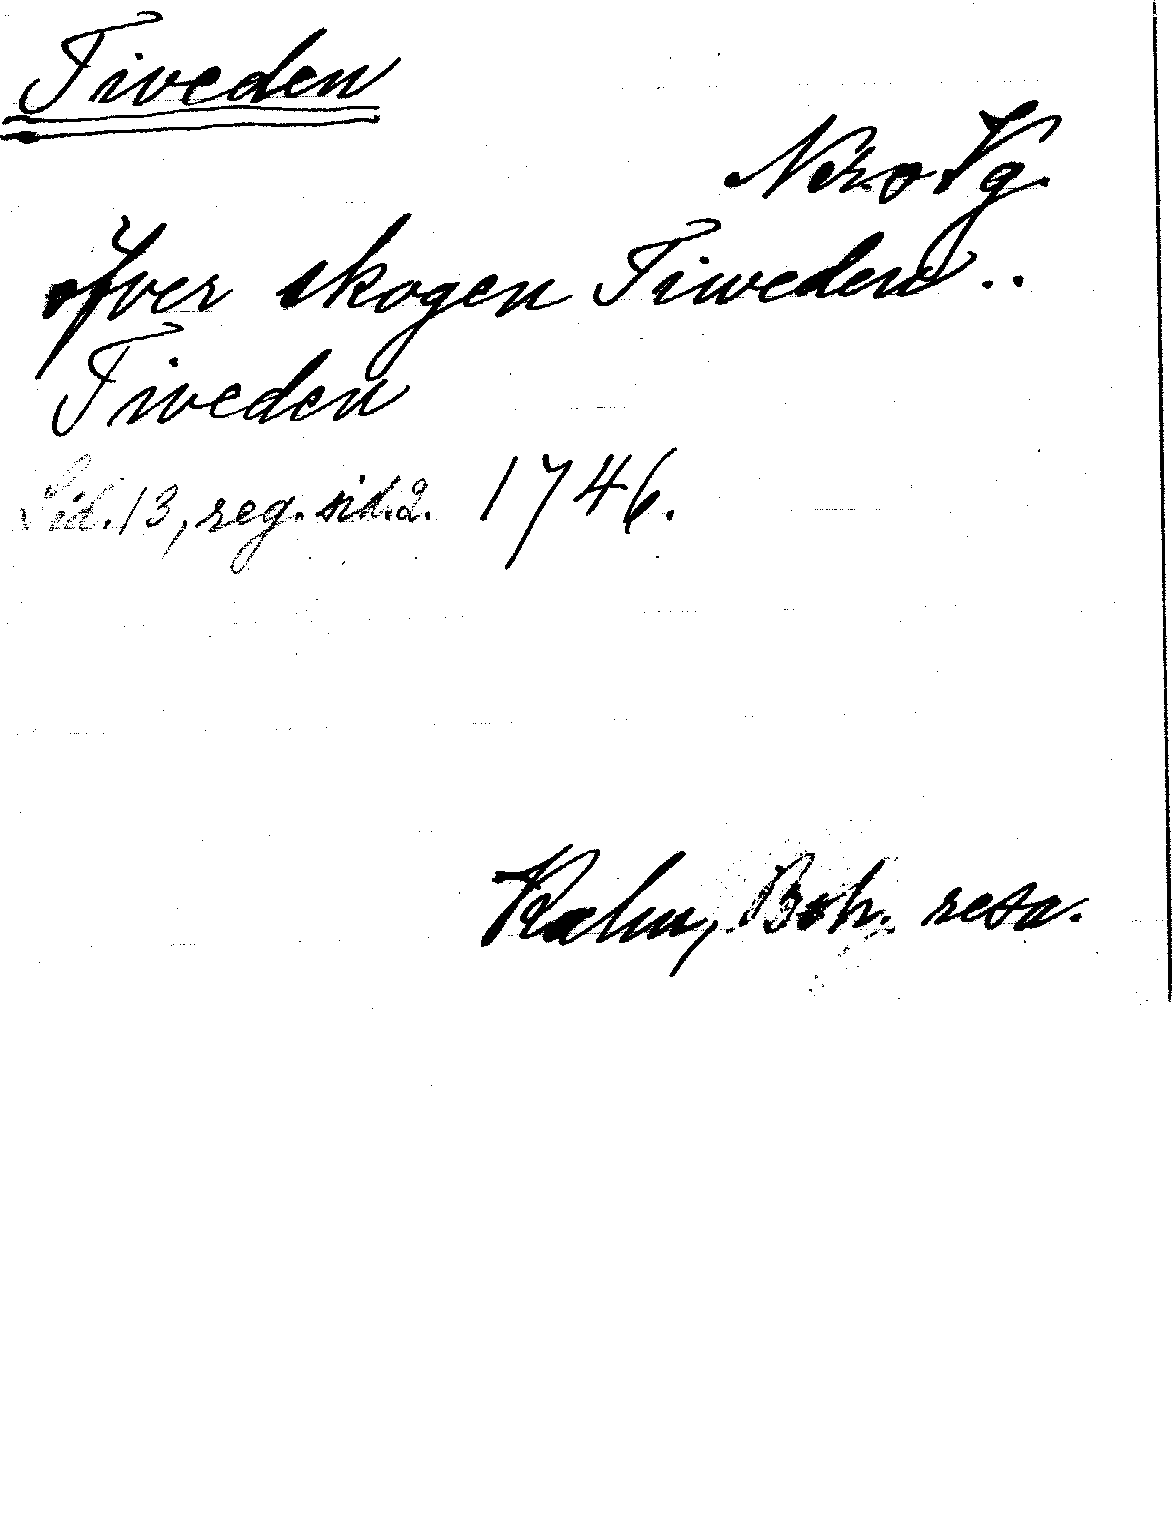 Tiveden
Nero Vg.
öfver skogen Tiweden..
Tiveden
Sid. 13, reg. sid. 2. 1746.
Kalm, Boh. resa.